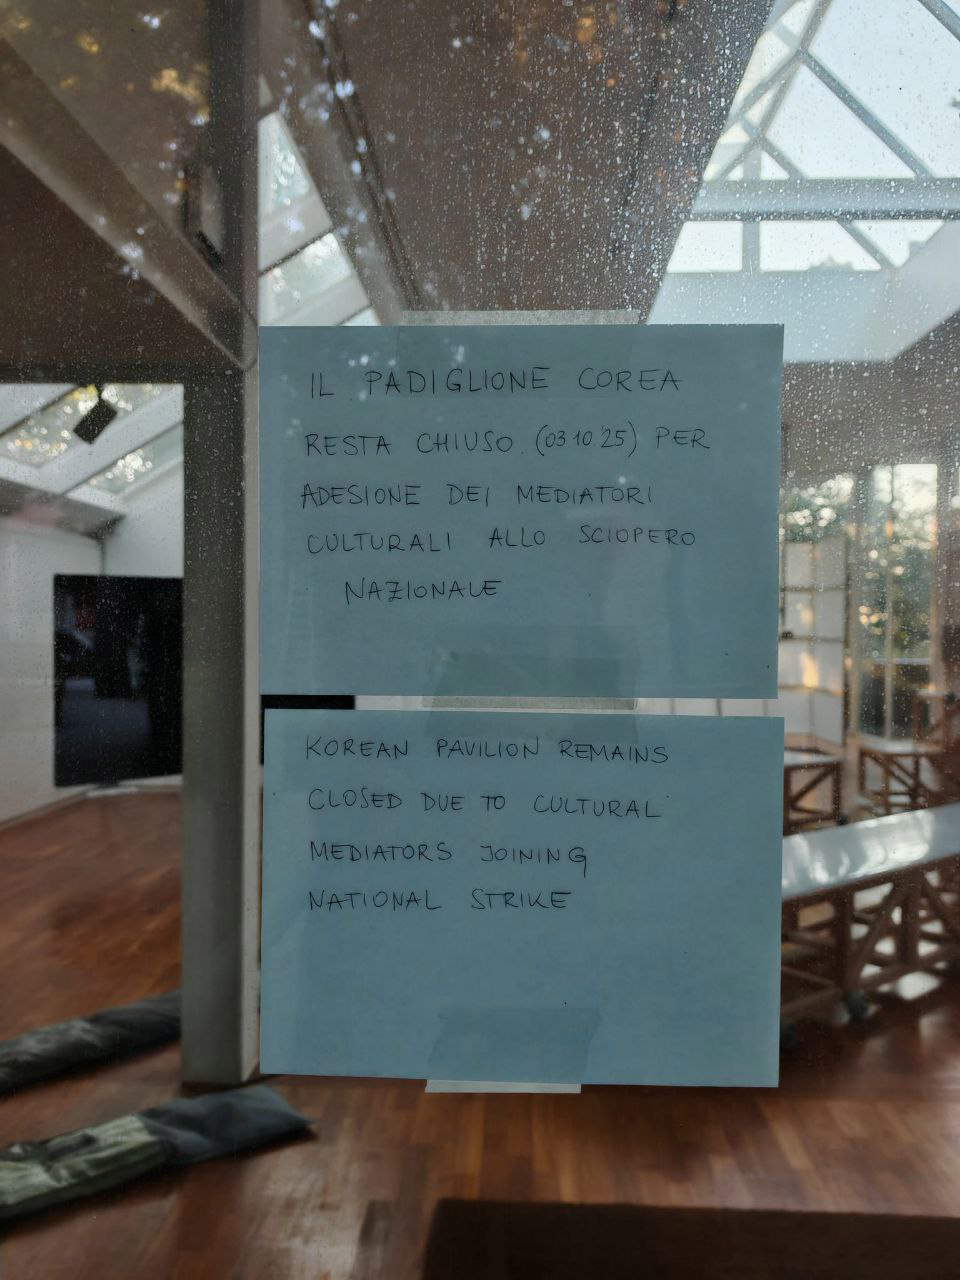 IL PADIGLIONE COREA
RESTA CHIUSO (03 10 '25) PER
ADESIONE DEI MEDIATORI
CULTURALI ALLO SCIOPERO
NAZIONALE
KOREAN PAVILION REMAINS
CLOSED DUE TO CULTURAL
MEDIATORS JOINING
NATIONAL STRIKE